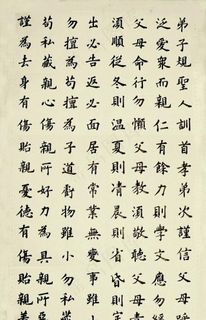 弟子規聖人訓首孝弟次謹信父母呼
泛愛衆而親仁有餘力則學文應勿緩
父母命行勿懶父母教須敬聽父母責
須順從冬則温夏則凊晨則省昏則定
出必告返必面居有常業無變事雖
勿擅為苟擅為子道虧物雖小勿私
苟私藏親心傷親所好力為具親所惡
謹為去身有傷貽親憂德有傷貽親